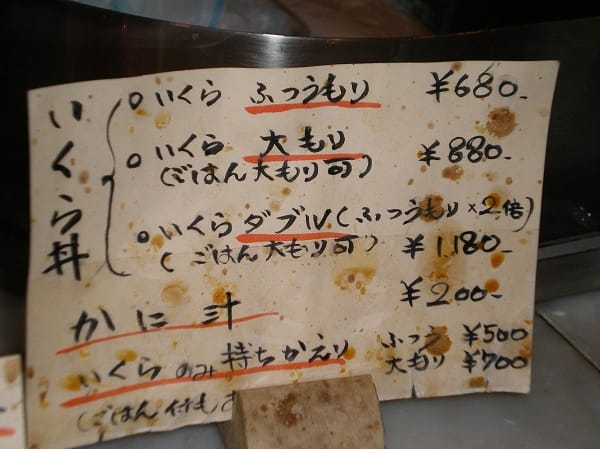 いくら丼
○いくら ふつうもり ¥680-
○いくら 大もり ¥880-
(ごはん大もり可)
○いくら ダブル(ふつうもり×2倍)
(ごはん大もり可) ¥1,180-
かに汁 ¥200-
いくらのみ持ちかえり ふつう ¥500
大もり ¥700
(ごはん付も